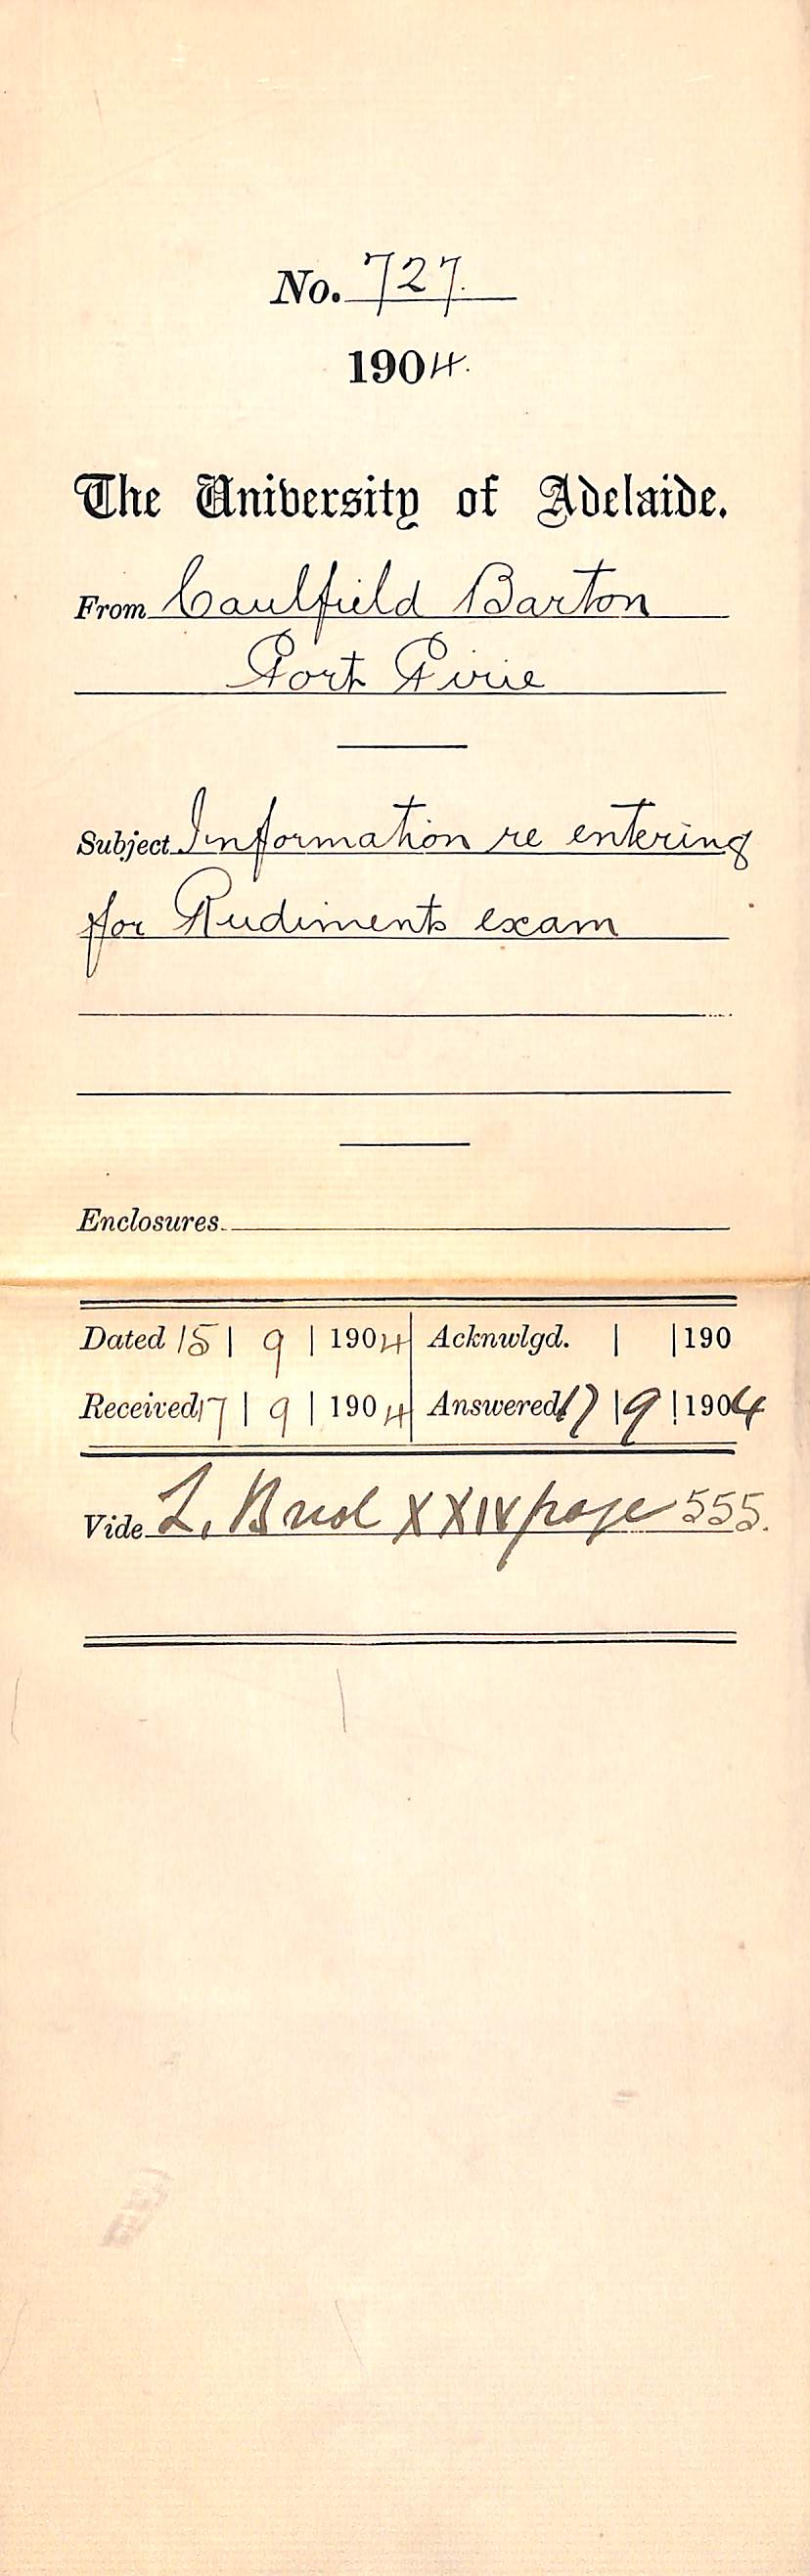 No. 727.
1904.
The University of Adelaide.
From Caulfield Barton
Port Pirie
Subject Information re entering
for Rudiments exam
Enclosures
Dated 15 | 9 | 1904 Acknwlgd. | | 190
Received 17 | 9 | 1904 Answered 17 | 9 | 1904
Vide L. XXIV page 555.